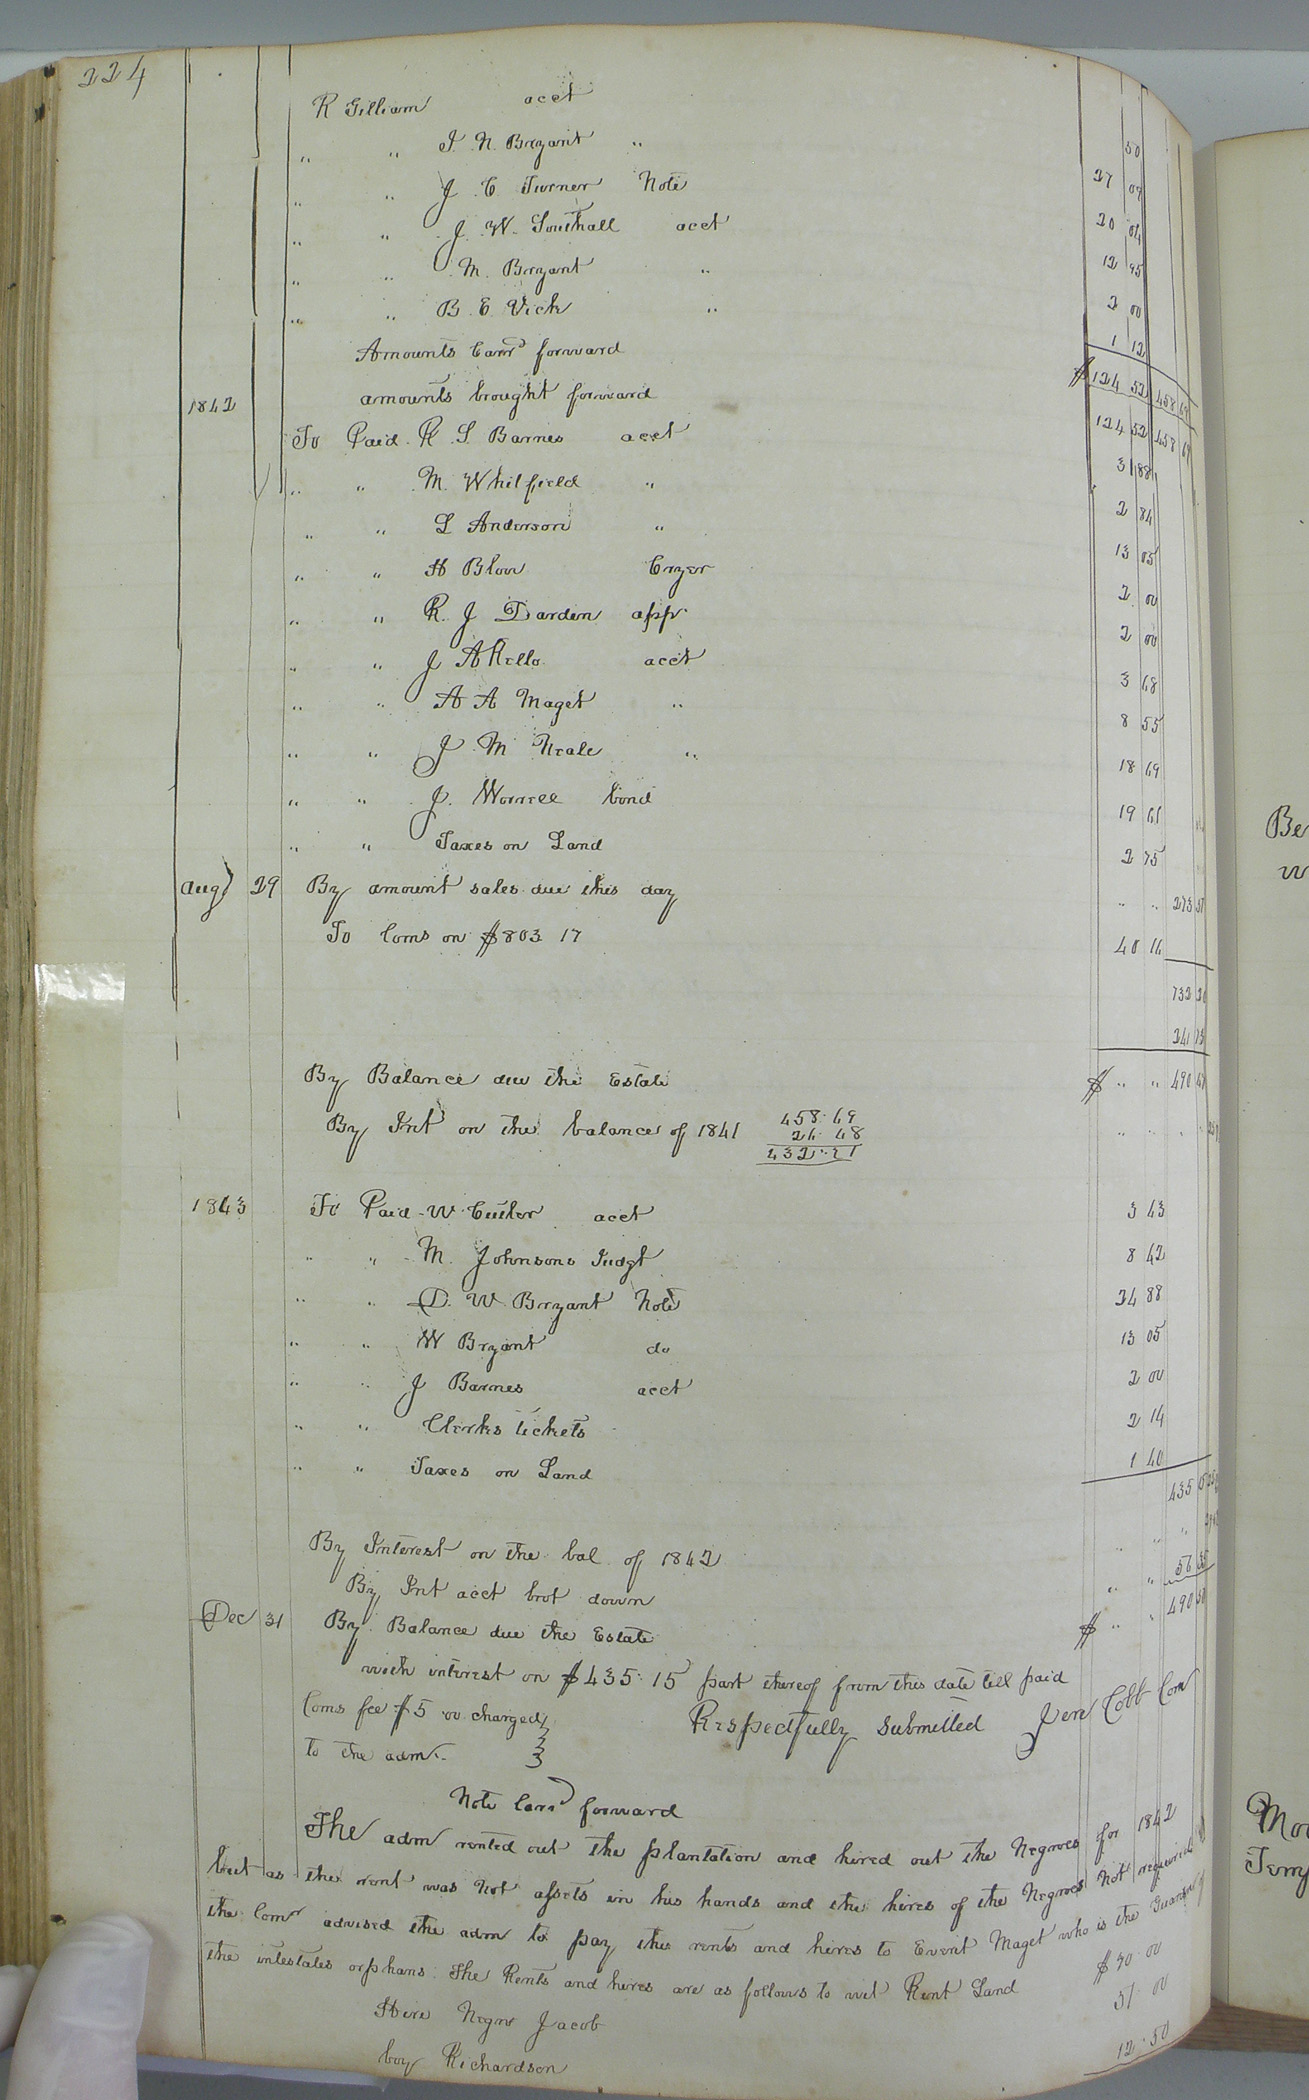 224
R Gilliam acct 50
" " J. N. Bryant " 27 09
" " J. E Turner Note 20 04
" " J. W. Southall acct 12 95
" " M. Bryant " 2 00
" " B. E. Vick " 1 12
Amounts Carrd forward $124 52 458 69
1842 amounts brought forward 124 52 458 69
To Paid R. S. Barnes acct 3 88
" " M. Whitfield " 2 84
" " L Anderson " 13 05
" " H Blow Cryer 2 00
" " R. J Darden app 2 00
" " J A Rello acct 3 68
" " A A Maget " 8 55
" " J. M Neale " 18 69
" " J. Worrell bond 19 61
" " Taxes on Land 2 75
Aug 29 By amount sales due this day " " 273 51
To Coms on $803 17 40 16
732 20
241 73
By Balance due the Estate $ " " 490 47
By Int on the balance of 1841 458.69
26.48
432.21
1843 To Paid W. Cutler acct 3 43
" " M. Johnsons Judgt 8 42
" " D. W. Bryant Note 24 88
" " W Bryant do 13 05
" " J Barnes acct 2 00
" " Clerks tickets 2 14
" " Taxes on Land 1 40
435 15
By Interest on the bal. of 1842
By Int acct brot down " " 56 35
Dec 31 By Balance due the Estate $ " " 490 50
with interest on $435.15 part thereof from this date till paid
Coms fee $5 00 charged Respectfully submitted Jere Cobb Com
to the admr.
Note Carrd forward
The adm rented out the plantation and hired out the Negroes for 1842
but as the rent was not assets in his hands and the hires of the Negroes not required
the Comr advised the adm to pay the rents and hires to Everit Maget who is the Guardian of
the intestates orphans. The Rents and hires are as follows to wit Rent Land $30.00
Hire Negro Jacob 51 00
boy Richardson 12.50
Be
w
Mo
Terry